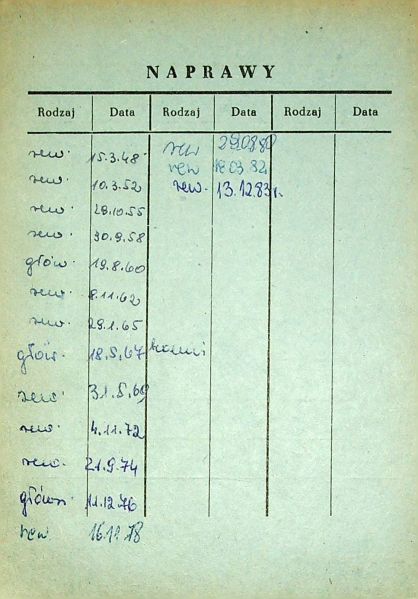 NAPRAWY
Rodzaj Data Rodzaj Data Rodzaj Data
rew. 15.3.48
rew. 10.3.52
rew. 29.10.55
rew. 30.9.58
głów. 19.8.60
rew. 8.11.62
rew. 29.1.65
głów. 18.5.67
rew. 31.5.69
rew. 4.11.72
rew. 21.9.74
główn 11.12.76
rew. 16.11.78
rew 29.08.80
rew 18 03 82
rew. 13.12.83 r.